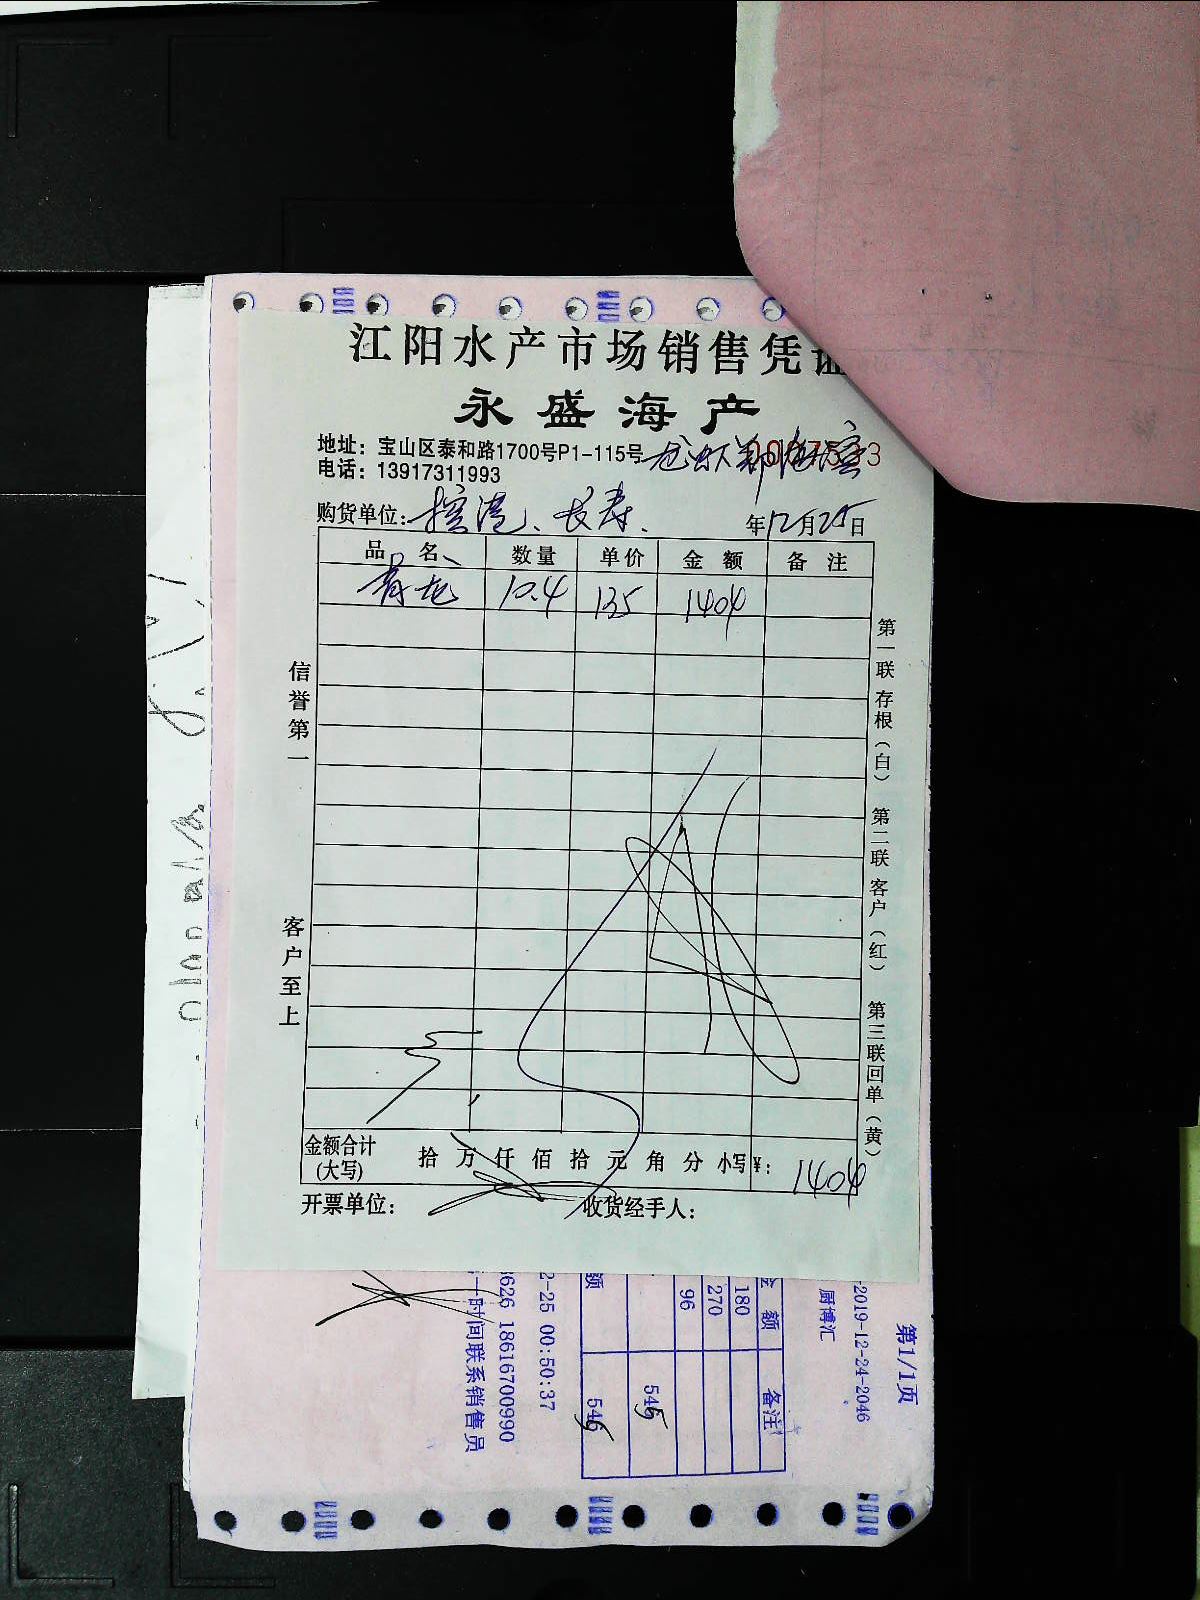 江阳水产市场销售凭证
永盛海产
地址：宝山区泰和路1700号P1-115号
电话：13917311993
购货单位： 长寿
年12月25日
品 名 数量 单价 金 额 备 注
青龙 10.4 135 1404
信誉第一
客户至上
第一联 存根（白） 第二联 客户（红） 第三联 回单（黄）
金额合计(大写) 拾 万 仟 佰 拾 元 角 分 小写¥：1404
开票单位： 收货经手人：
第1/1页
-2019-12-24-2046
厨博汇
金 额 备注
180
270
96
545
额 546
2-25 00:50:37
3626 18616700990
一时间联系销售员